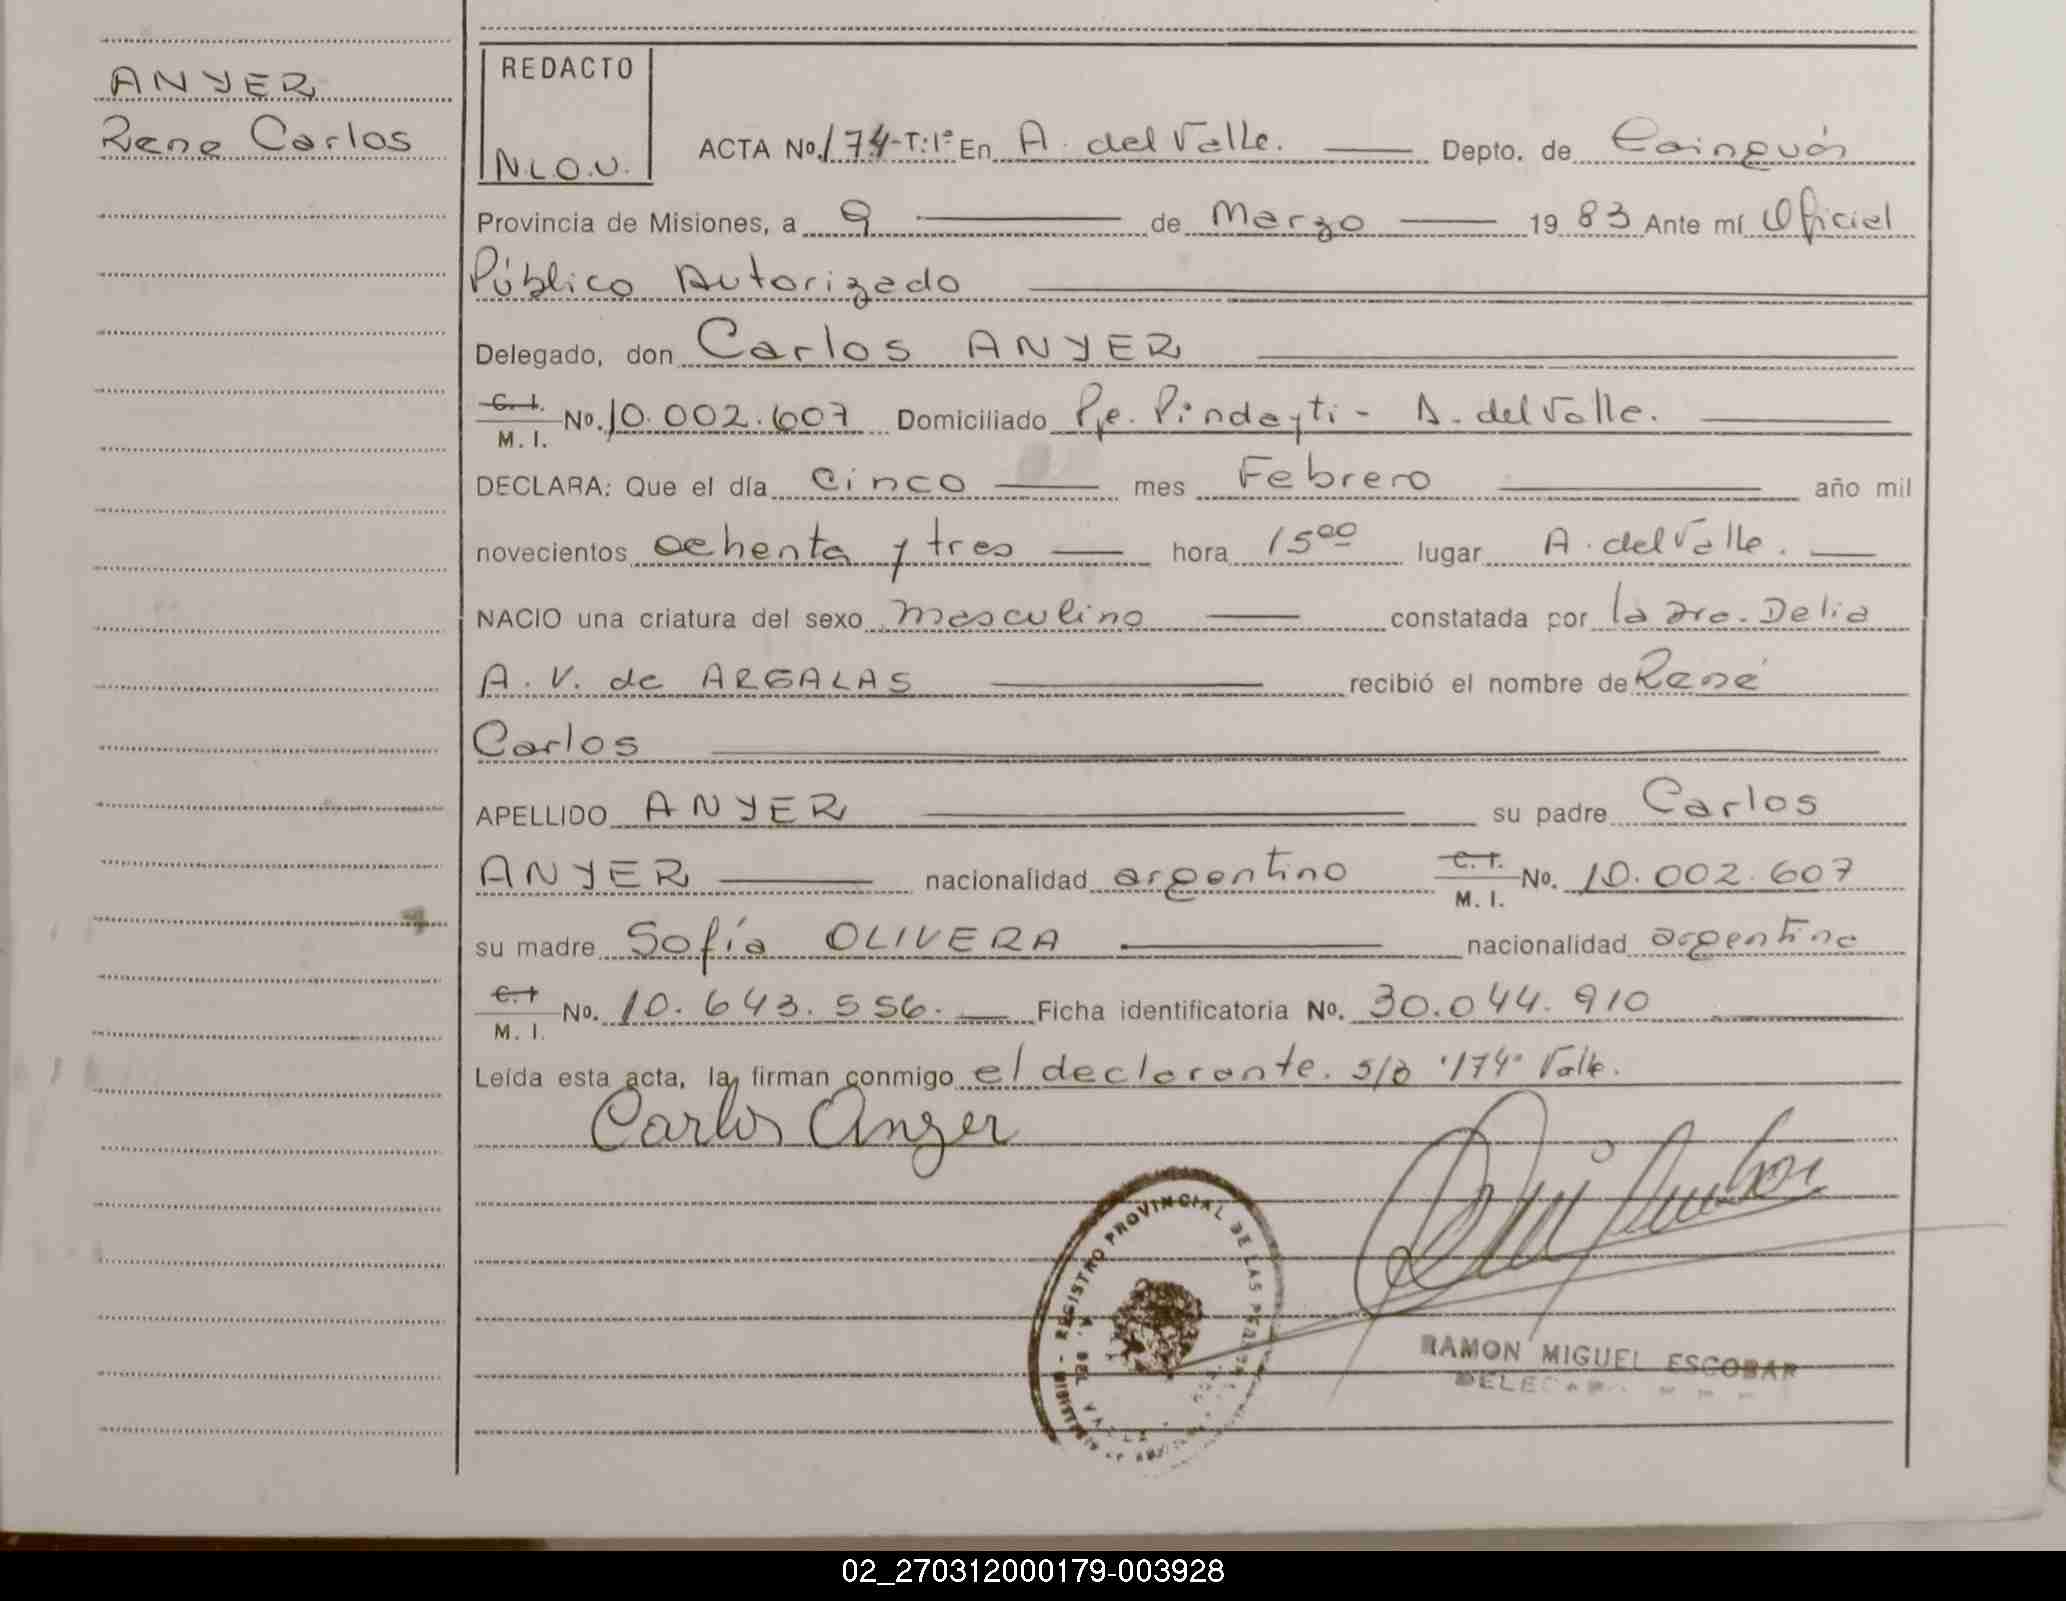 ANYER
Rene Carlos
REDACTO
N.L.O.V.
ACTA No. 174-T:1º En A. del Valle. Depto. de Cainguás
Provincia de Misiones, a 9 de Marzo 1983 Ante mí Oficial
Público Autorizado
Delegado, don Carlos ANYER
C. I. M. I. No. 10.002.607 Domiciliado Pje. Pindayti - A. del Valle.
DECLARA: Que el día cinco mes Febrero año mil
novecientos ochenta y tres hora 15 00 lugar A. del Valle.
NACIO una criatura del sexo masculino constatada por la Dra. Delia
A. V. de ARGALAS recibió el nombre de René
Carlos
APELLIDO ANYER su padre Carlos
ANYER nacionalidad argentino C. I. M. I. No. 10.002.607
su madre Sofía OLIVERA nacionalidad argentina
C. I. M. I. No. 10.643.556. Ficha identificatoria No. 30.044.910
Leída esta acta, la firman conmigo el declarante. s/b "174" Valle.
Carlos Anyer
REGISTRO PROVINCIAL DE LAS
RAMON MIGUEL ESCOBAR
02_270312000179-003928